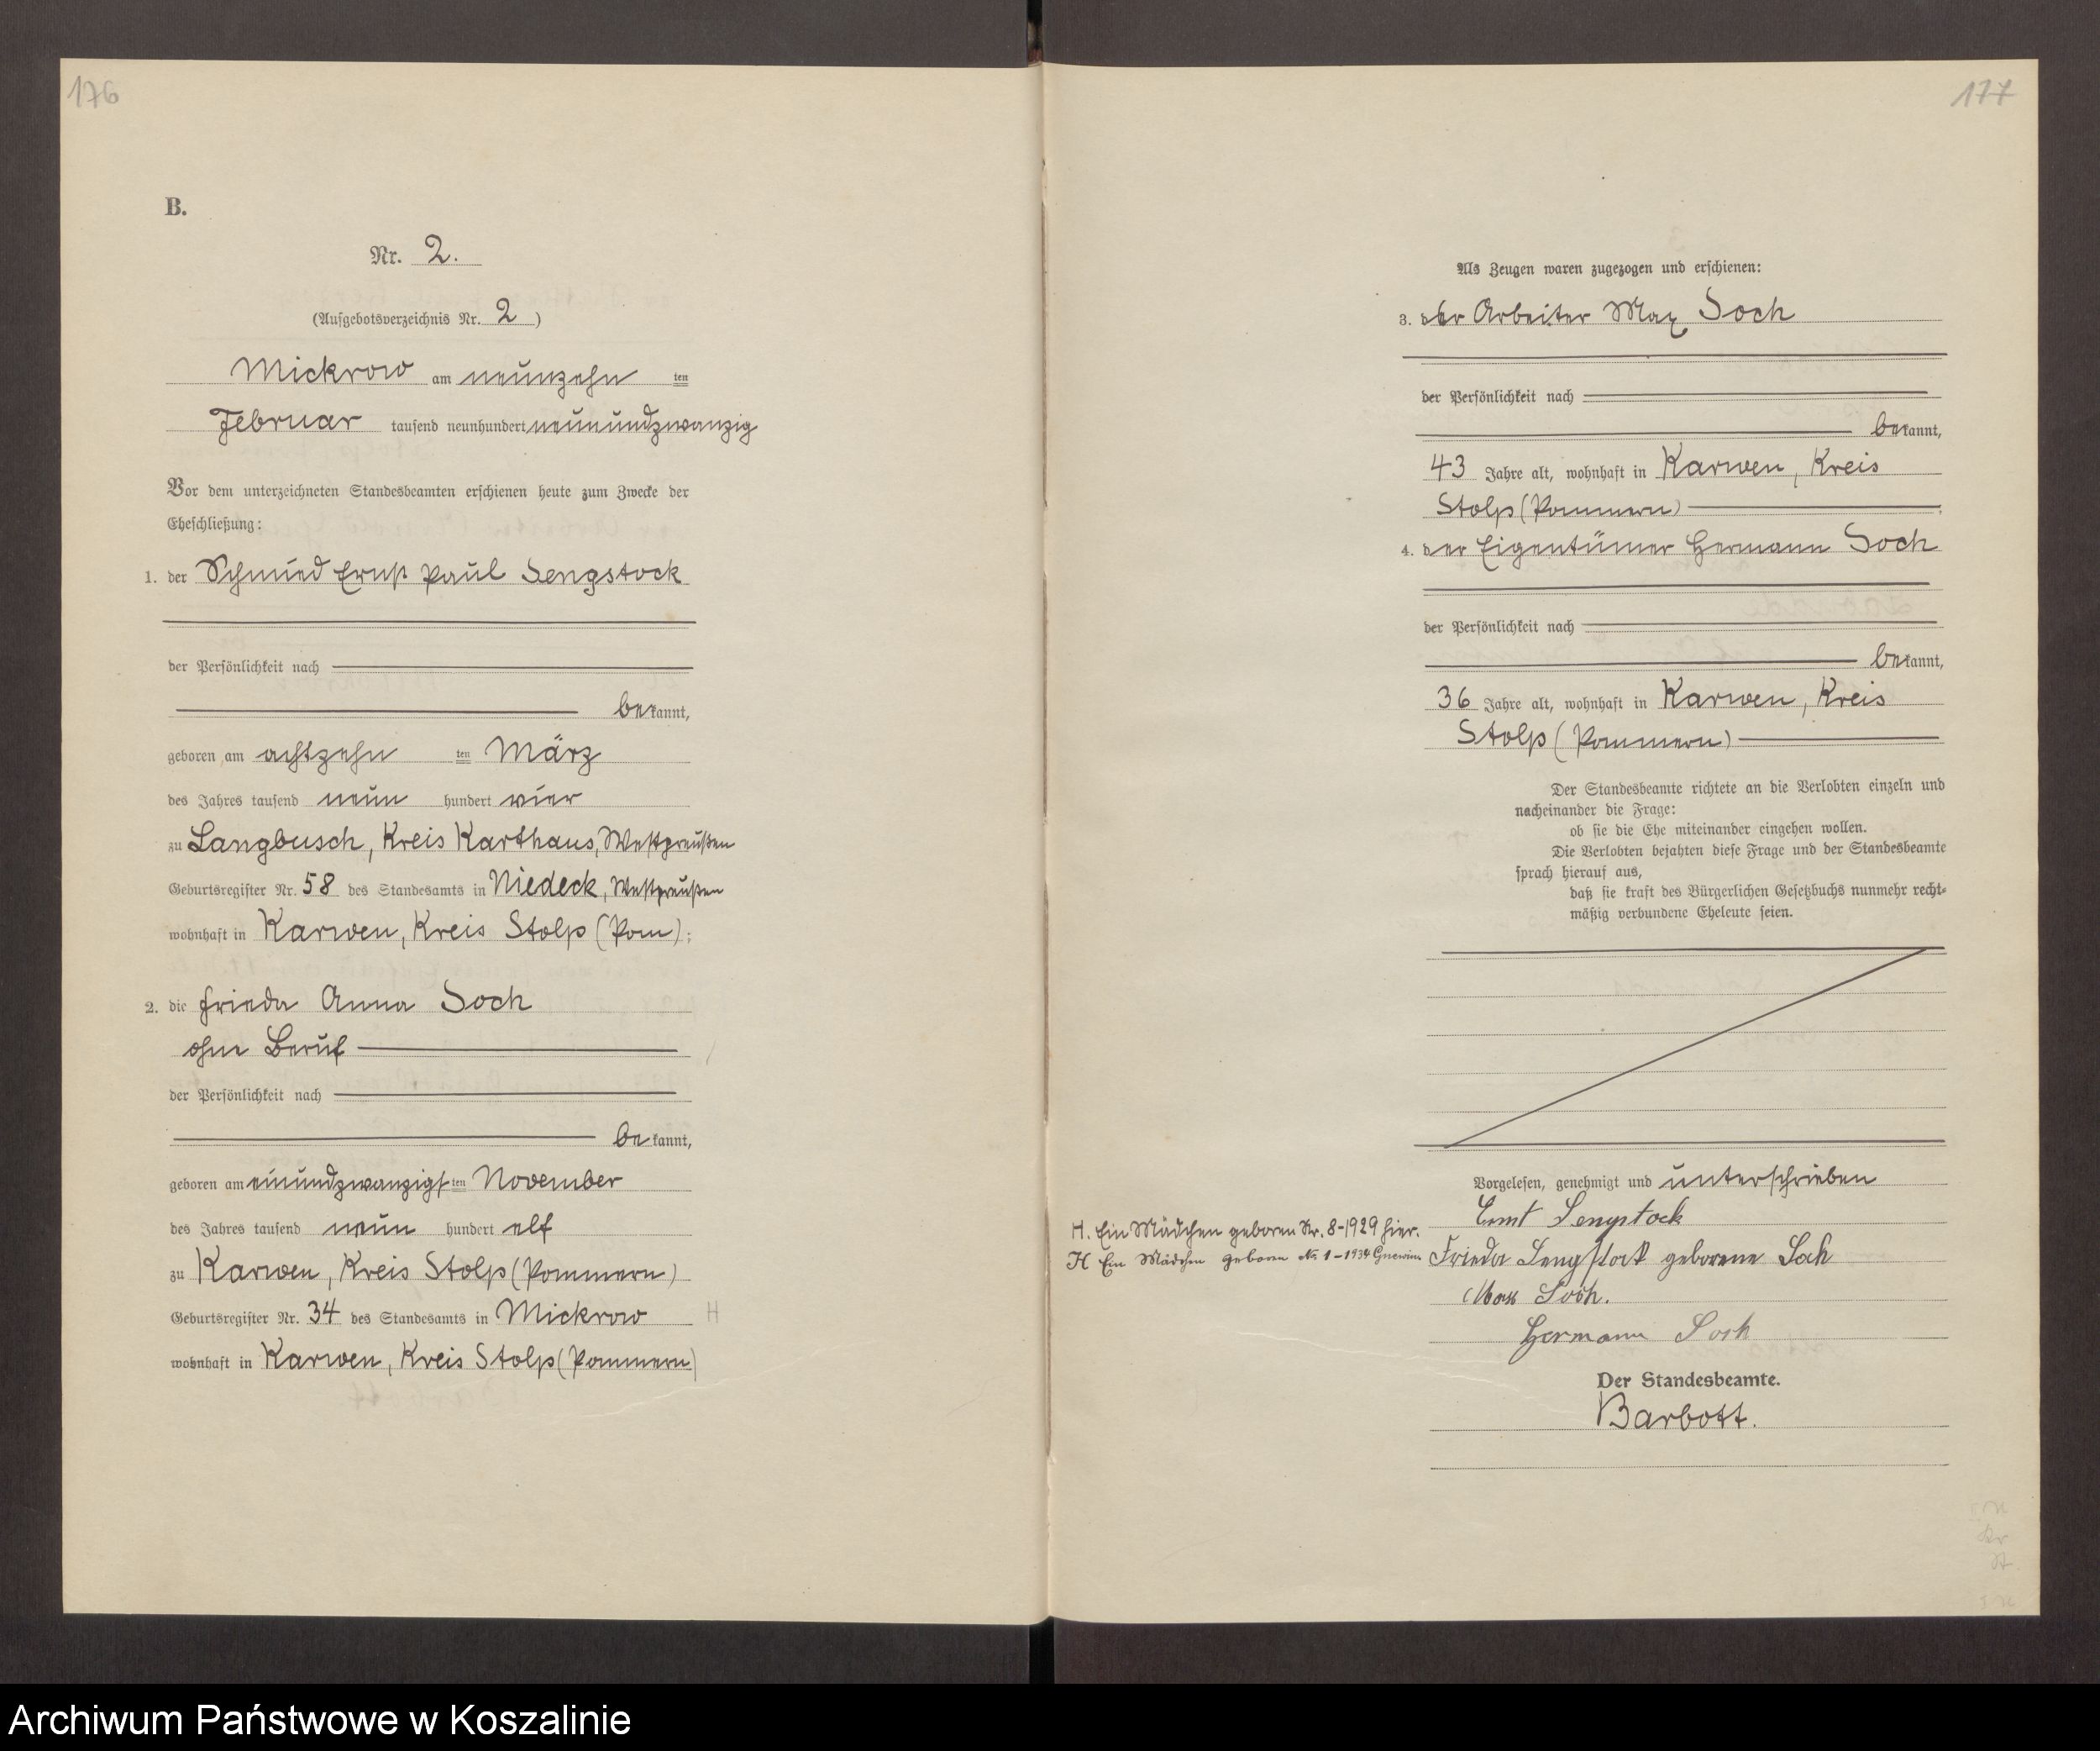 176
B.
Nr. 2.
(Aufgebotsverzeichnis Nr. 2)
Mickrow am neunzehnten
Februar tausend neunhundert neunundzwanzig
Vor dem unterzeichneten Standesbeamten erschienen heute zum Zwecke der
Eheschließung:
1. der Schmied Ernst Paul Sengstock
der Persönlichkeit nach
bekannt,
geboren am achtzehnten März
des Jahres tausend neun hundert vier
zu Langbusch, Kreis Karthaus, Westpreußen
Geburtsregister Nr. 58 des Standesamts in Niedeck, Westpreußen
wohnhaft in Karwen, Kreis Stolp (Pom);
2. die Frieda Anna Soch
ohne Beruf
der Persönlichkeit nach
bekannt,
geboren am einundzwanzigsten November
des Jahres tausend neun hundert elf
zu Karwen, Kreis Stolp (Pommern)
Geburtsregister Nr. 34 des Standesamts in Mickrow H
wohnhaft in Karwen, Kreis Stolp (Pommern)
177
Als Zeugen waren zugezogen und erschienen:
3. der Arbeiter Max Soch
der Persönlichkeit nach
bekannt,
43 Jahre alt, wohnhaft in Karwen, Kreis
Stolp (Pommern)
4. der Eigentümer Hermann Soch
der Persönlichkeit nach
bekannt,
36 Jahre alt, wohnhaft in Karwen, Kreis
Stolp (Pommern)
Der Standesbeamte richtete an die Verlobten einzeln und
nacheinander die Frage:
ob sie die Ehe miteinander eingehen wollen.
Die Verlobten bejahten diese Frage und der Standesbeamte
sprach hierauf aus,
daß sie kraft des Bürgerlichen Gesetzbuchs nunmehr recht-
mäßig verbundene Eheleute seien.
Vorgelesen, genehmigt und unterschrieben
Ernst Sengstock
H. Ein Mädchen geboren Nr. 8-1929 hier.
H Ein Mädchen geboren No. 1-1934 Gnewin
Frieda Sengstock geborene Soch
Max Soch.
Hermann Soch
Der Standesbeamte.
Barbott.
Archiwum Państwowe w Koszalinie